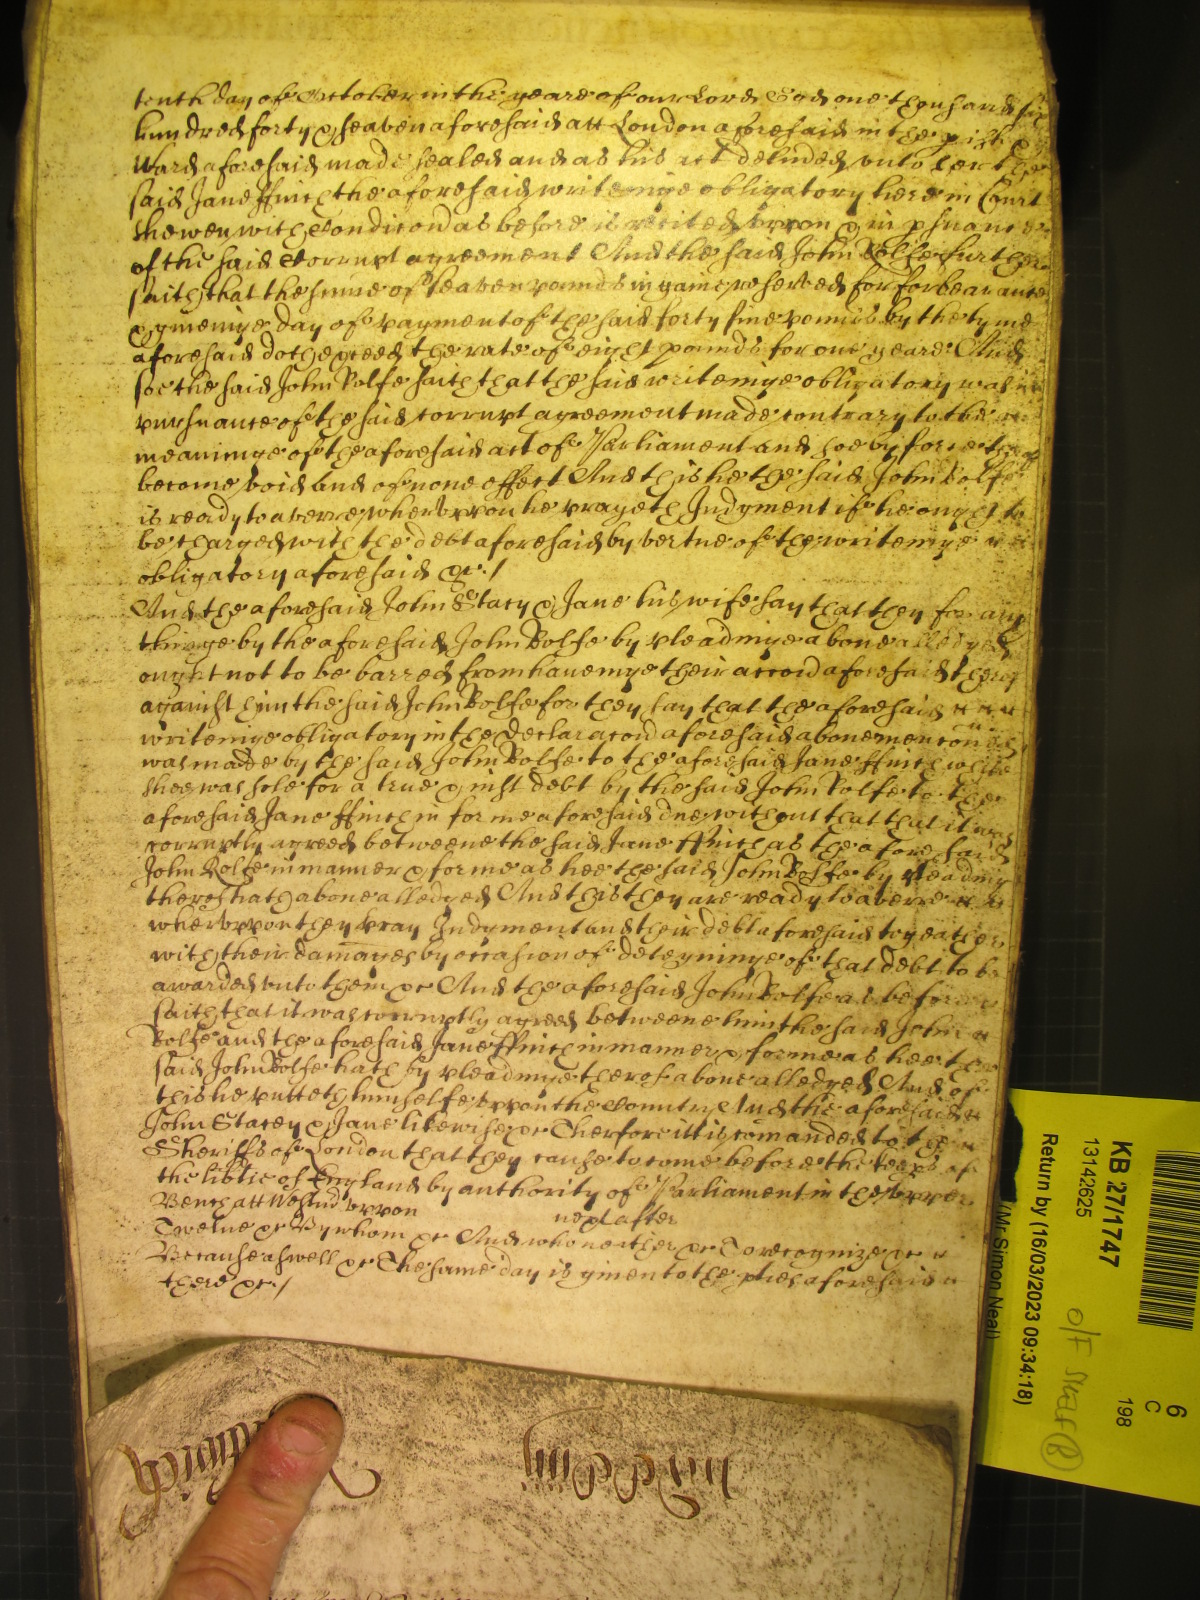 tenth day of October in the yeare of our Lord God one thousand six
hundred forty & seaven aforesaid att London aforesaid in the pish &
Ward aforesaid made sealed and as his act deliued vnto her the
said Jane ffinch the aforesaid writeinge obligatory here in Court
shewen with Condicon as before is recited vppon & in psuance
of the said Corrupt agreement And the said John Rolfe further
saith that the sume of seaven pounds in gaine reserved for forbearance
& giueinge day of payment of the said forty fiue pounds by the tyme
aforesaid doth exceed the rate of eight pounds for one yeare And
soe the said John Rolfe saith that the said writeinge obligatory was in
pursuance of the said corrupt agreement made contrary to the
meaninge of the aforesaid act of Parliament and soe by force therof
become void and of none effect And this he the said John Rolfe
is ready to averre whervppon he prayeth Judgment if he ought to
be charged with the debt aforesaid by vertue of the writeinge
obligatory aforesaid &c /
And the aforesaid John Stacy & Jane his wife say that they for any
thinge by the aforesaid John Rolfe by pleadinge aboue alledged
ought not to be barred from haueinge their accon aforesaid therof
against him the said John Rolfe for they say that the aforesaid
writeinge obligatory in the declaracon aforesaid aboue menconed
was made by the said John Rolfe to the aforesaid Jane ffinch while
shee was sole for a true & iust debt by the said John Rolfe to the
aforesaid Jane ffinch in forme aforesaid due without that that it was
corruptly agreed betweene the said Jane ffinch as the aforesaid
John Rolfe in manner & forme as hee the said John Rolfe by pleading
therof hath aboue alledged And this they are ready to averre
whervppon they pray Judgment and their debt aforesaid togeather
with their damages by occasion of deteyninge of that debt to be
awarded vnto them &c And the aforesaid John Rolfe as before
saith that it was corruptly agreed betweene him the said John
Rolfe and the aforesaid Jane ffinch in manner & forme as hee the
said John Rolfe hath by pleadinge therof aboue alledged And of
this he putteth himselfe vppon the Country And the aforesaid
John Stacey & Jane likewise &c Therfore itt is comanded to the
Sheriffs of London that they cause to come before the keeps of
the libtie of England by authority of Parliament in the vpper
Bench att Westmd vppon next after
Twelue &c By whom &c And who neither &c To recognize &c
Because aswell &c The same day is giuen to the pties aforesaid
there &c /
KB 27/1747
13142625
Return by (16/03/2023 09:34:18)
(Mr Simon Neal)
6
C
198
O/F